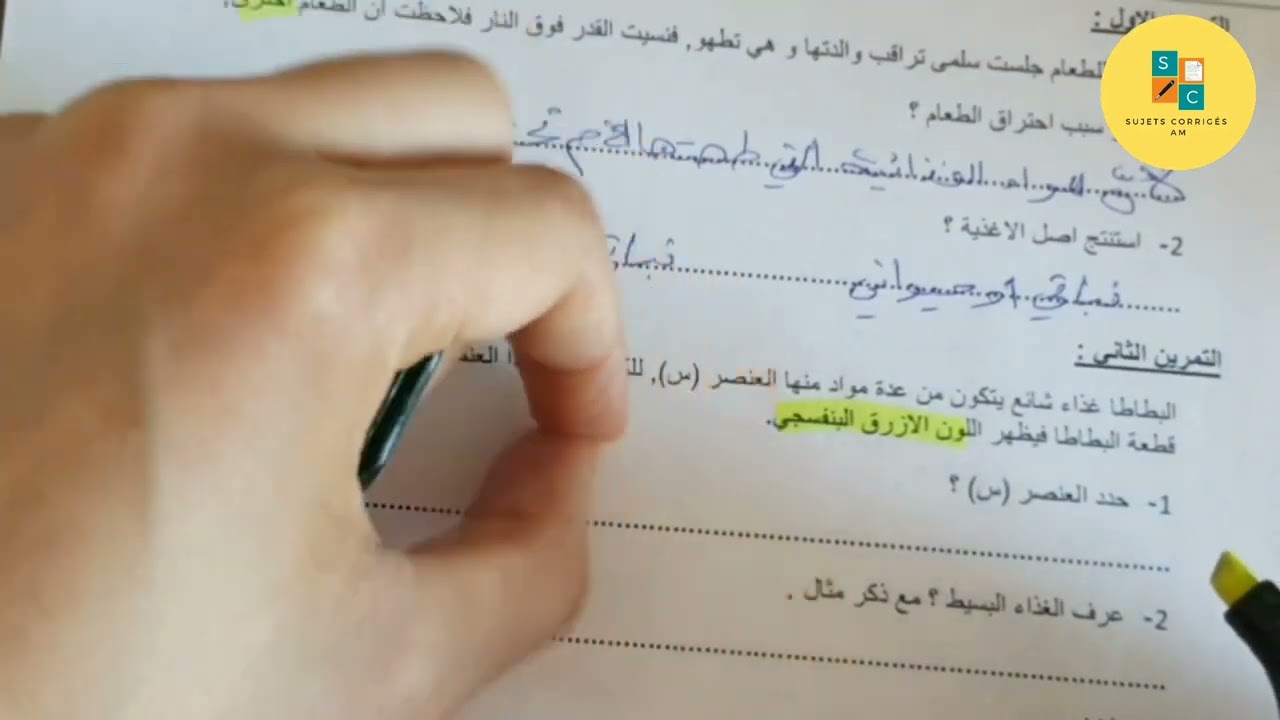 الاول :
الطعام جلست سلمى تراقب والدتها و هي تطهو, فنسيت القدر فوق النار فلاحظت ان الطعام احترق.
سبب احتراق الطعام ؟
المواد الغذائية التي طهتها الأم
2- استنتج اصل الاغذية ؟
نباتي أو حيواني
التمرين الثاني :
البطاطا غذاء شائع يتكون من عدة مواد منها العنصر (س),
قطعة البطاطا فيظهر اللون الازرق البنفسجي.
1- حدد العنصر (س) ؟
2- عرف الغذاء البسيط ؟ مع ذكر مثال .
S
C
SUJETS CORRIGÉS
AM